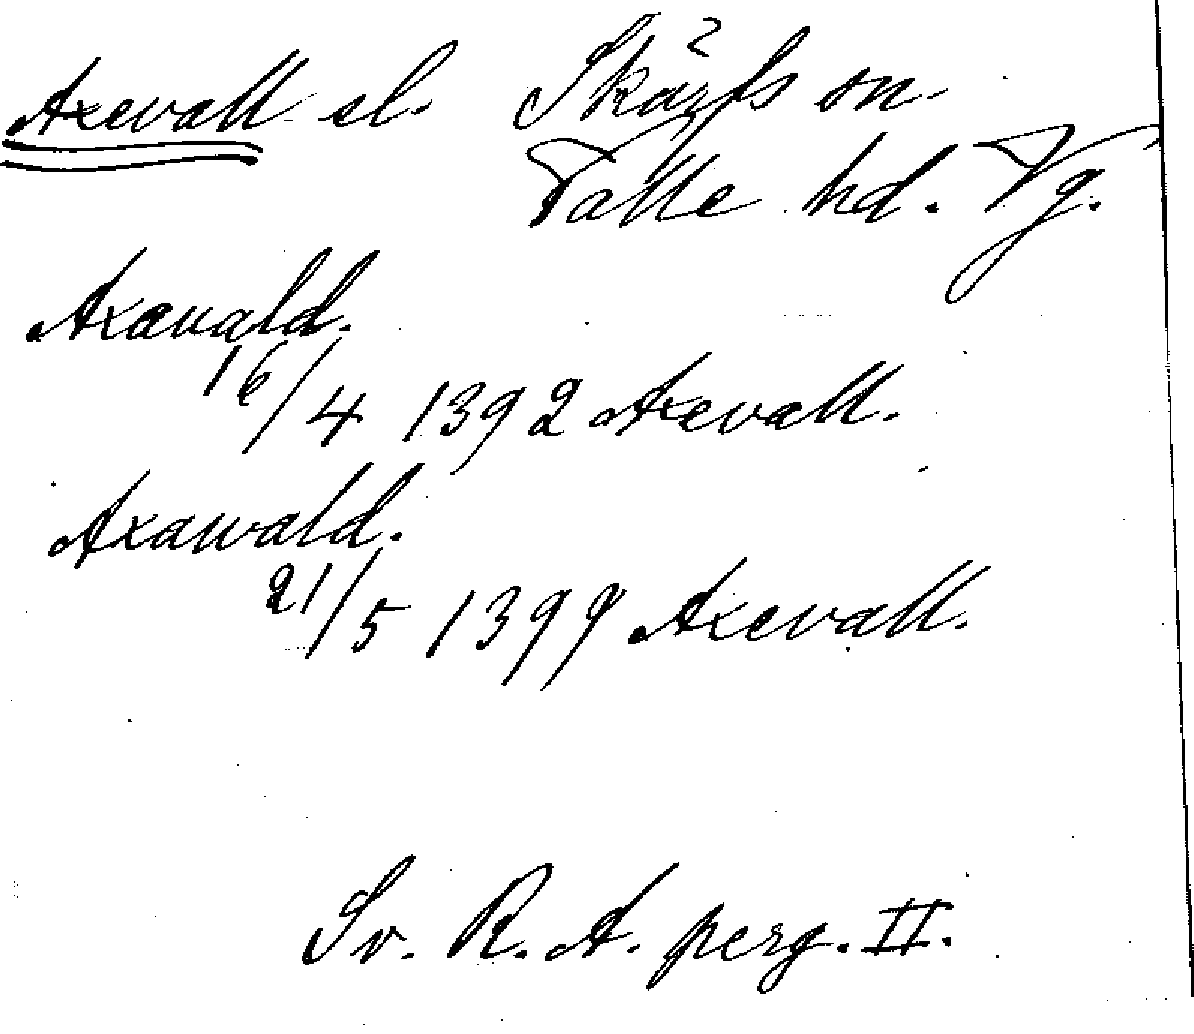 Axevall el. Skärfs sn.
Valle hd. Vg.
Axawald.
16/4 1392 Axevall.
Axawald.
21/5 1399 Axevall.
Sv. R. A. perg. II.